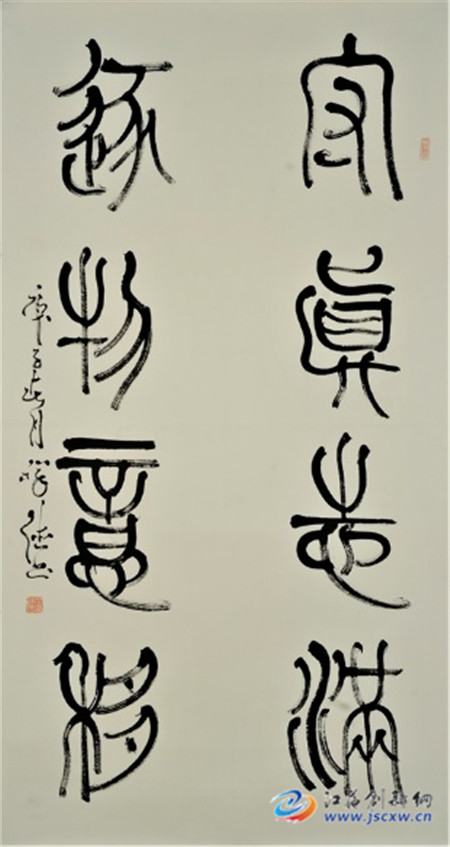 守真志滿
逐物意移
庚子春月
江苏创新网
www.jscxw.cn